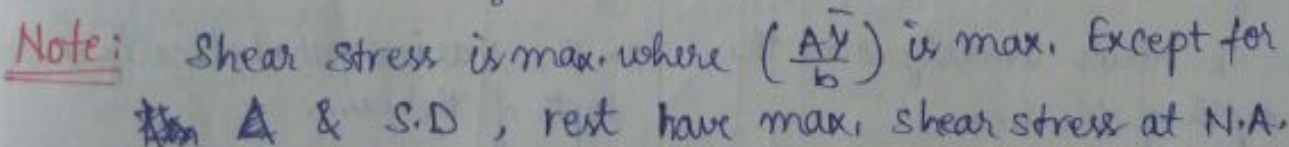 Note: Shear stress is max. where (AȲ/b) is max. Except for
Δ & S.D , rest have max. shear stress at N.A.